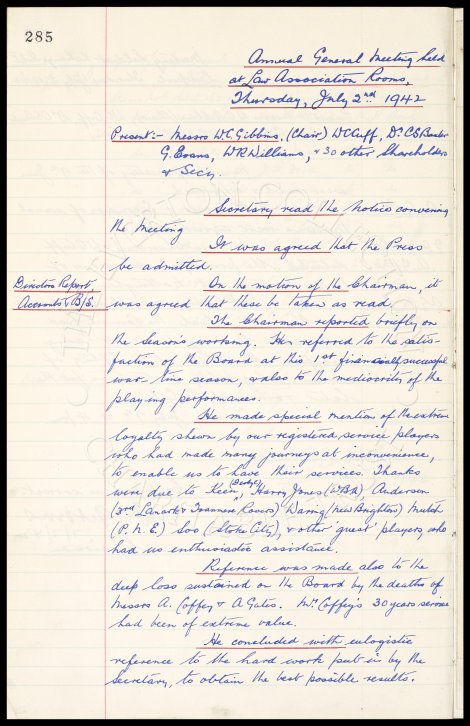 285
Annual General Meeting held
at Law Association Rooms,
Thursday, July 2nd 1942
Present:- Messrs W.C. Gibbins, (Chair) W.C. Cuff, Dr. C.S. Baxter
G. Evans, W.R. Williams, & 30 other Shareholders
& Secy.
Secretary read the Notice convening
the Meeting
It was agreed that the Press
be admitted.
Directors Report,
Accounts & B/S.
On the motion of the Chairman, it
was agreed that these be taken as read.
The Chairman reported briefly on
the Season's working. He referred to the satis-
faction of the Board at this 1st financially successful
war-time season, & also to the mediocrity of the
playing performances.
He made special mention of the extreme
loyalty shewn by our registered service players
who had made many journeys at inconvenience,
to enable us to have their services. Thanks
were due to Keen (Derby C), Harry Jones (W.B.A), Anderson
(3rd Lanark & Tranmere Rovers) Waring (New Brighton) Mutch
(P.N.E.) Soo (Stoke City), & other 'guest' players, who
had us enthusiastic assistance.
Reference was made also to the
deep loss sustained on the Board by the deaths of
Messrs A. Coffey & A Gates. Mr. Coffey's 30 years service
had been of extreme value.
He concluded with eulogistic
reference to the hard work put in by the
Secretary, to obtain the best possible results.